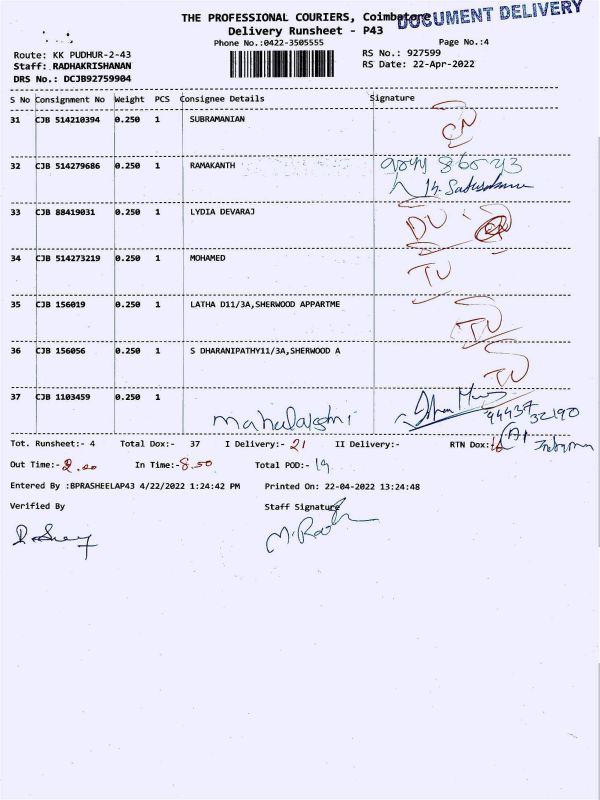 THE PROFESSIONAL COURIERS, Coimbatore
DOCUMENT DELIVERY
Delivery Runsheet - P43
Phone No.:0422-3505555
Page No.:4
Route: KK PUDHUR-2-43
RS No.: 927599
Staff: RADHAKRISHANAN
RS Date: 22-Apr-2022
DRS No.: DCJB92759904
S No Consignment No Weight PCS Consignee Details Signature
31 CJB 514210394 0.250 1 SUBRAMANIAN
32 CJB 514279686 0.250 1 RAMAKANTH
33 CJB 88419031 0.250 1 LYDIA DEVARAJ DU
34 CJB 514273219 0.250 1 MOHAMED TU
35 CJB 156019 0.250 1 LATHA D11/3A,SHERWOOD APPARTME TU
36 CJB 156056 0.250 1 S DHARANIPATHY11/3A,SHERWOOD A TU
37 CJB 1103459 0.250 1
mahalakshmi 94437 32190
Tot. Runsheet:- 4 Total Dox:- 37 I Delivery:- 21 II Delivery:- RTN Dox:
Out Time:- In Time:- 8.50 Total POD:- 19
Entered By :BPRASHEELAP43 4/22/2022 1:24:42 PM Printed On: 22-04-2022 13:24:48
Verified By Staff Signature